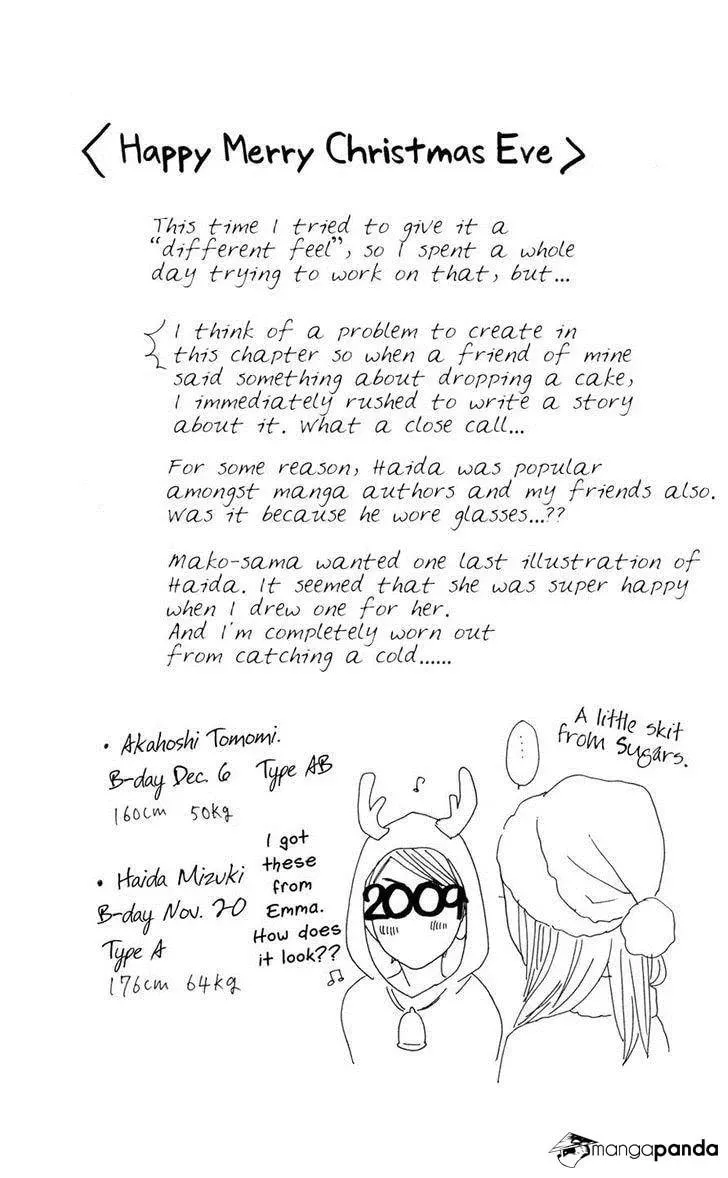 < Happy Merry Christmas Eve >
This time I tried to give it a
"different feel", so I spent a whole
day trying to work on that, but...
I think of a problem to create in
this chapter so when a friend of mine
said something about dropping a cake,
I immediately rushed to write a story
about it. What a close call...
For some reason, Haida was popular
amongst manga authors and my friends also.
Was it because he wore glasses...??
Mako-sama wanted one last illustration of
Haida. It seemed that she was super happy
when I drew one for her.
And I'm completely worn out
from catching a cold......
• Akahoshi Tomomi.
B-day Dec. 6 Type AB
160cm 50kg
• Haida Mizuki
B-day Nov. 20
Type A
176cm 64kg
I got
these
from
Emma.
How does
it look??
2009
...
A little skit
from Sugars.
mangapanda